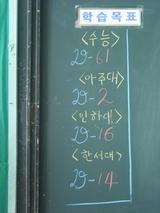 학습목표
<수능>
29-61
<아주대>
29-2
<인하대>
29-16
<한서대>
29-14